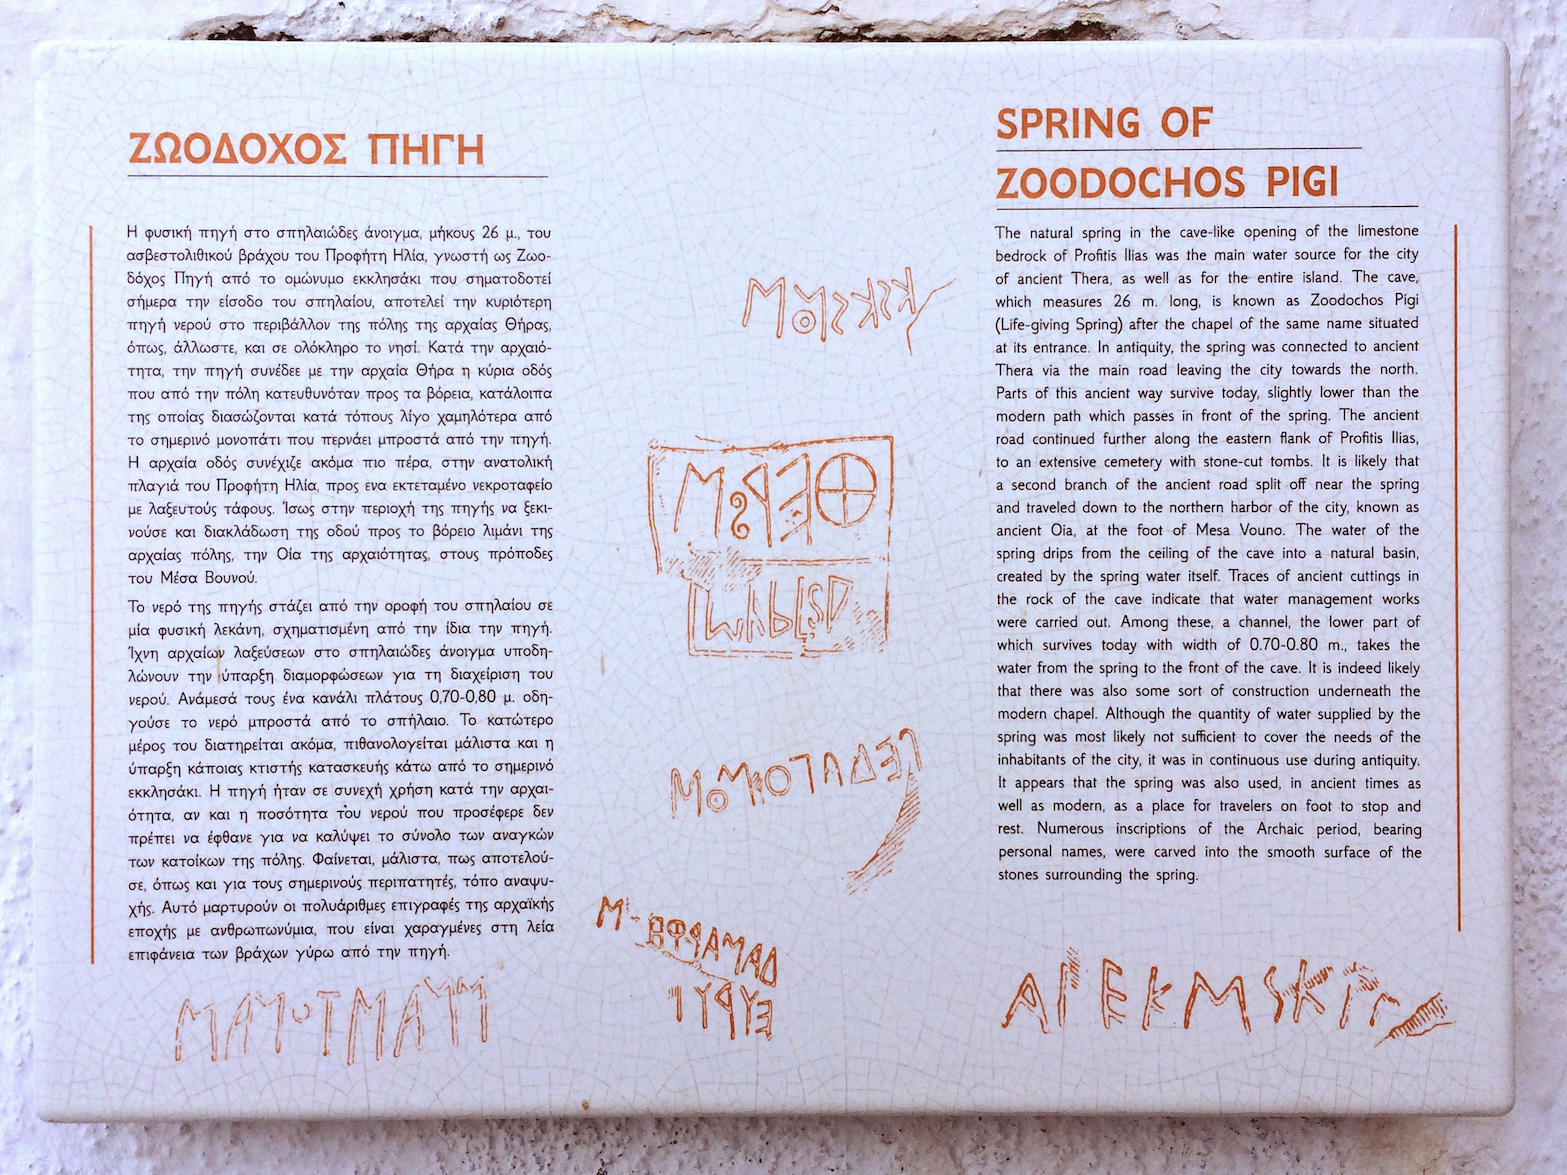 ΖΩΟΔΟΧΟΣ ΠΗΓΗ
Η φυσική πηγή στο σπηλαιώδες άνοιγμα, μήκους 26 μ., του
ασβεστολιθικού βράχου του Προφήτη Ηλία, γνωστή ως Ζωο-
δόχος Πηγή από το ομώνυμο εκκλησάκι που σηματοδοτεί
σήμερα την είσοδο του σπηλαίου, αποτελεί την κυριότερη
πηγή νερού στο περιβάλλον της πόλης της αρχαίας Θήρας,
όπως, άλλωστε, και σε ολόκληρο το νησί. Κατά την αρχαιό-
τητα, την πηγή συνέδεε με την αρχαία Θήρα η κύρια οδός
που από την πόλη κατευθυνόταν προς τα βόρεια, κατάλοιπα
της οποίας διασώζονται κατά τόπους λίγο χαμηλότερα από
το σημερινό μονοπάτι που περνάει μπροστά από την πηγή.
Η αρχαία οδός συνέχιζε ακόμα πιο πέρα, στην ανατολική
πλαγιά του Προφήτη Ηλία, προς ενα εκτεταμένο νεκροταφείο
με λαξευτούς τάφους. Ίσως στην περιοχή της πηγής να ξεκι-
νούσε και διακλάδωση της οδού προς το βόρειο λιμάνι της
αρχαίας πόλης, την Οία της αρχαιότητας, στους πρόποδες
του Μέσα Βουνού.
Το νερό της πηγής στάζει από την οροφή του σπηλαίου σε
μία φυσική λεκάνη, σχηματισμένη από την ίδια την πηγή.
Ίχνη αρχαίων λαξεύσεων στο σπηλαιώδες άνοιγμα υποδη-
λώνουν την ύπαρξη διαμορφώσεων για τη διαχείριση του
νερού. Ανάμεσά τους ένα κανάλι πλάτους 0,70-0,80 μ. οδη-
γούσε το νερό μπροστά από το σπήλαιο. Το κατώτερο
μέρος του διατηρείται ακόμα, πιθανολογείται μάλιστα και η
ύπαρξη κάποιας κτιστής κατασκευής κάτω από το σημερινό
εκκλησάκι. Η πηγή ήταν σε συνεχή χρήση κατά την αρχαι-
ότητα, αν και η ποσότητα του νερού που προσέφερε δεν
πρέπει να έφθανε για να καλύψει το σύνολο των αναγκών
των κατοίκων της πόλης. Φαίνεται, μάλιστα, πως αποτελού-
σε, όπως και για τους σημερινούς περιπατητές, τόπο αναψυ-
χής. Αυτό μαρτυρούν οι πολυάριθμες επιγραφές της αρχαϊκής
εποχής με ανθρωπωνύμια, που είναι χαραγμένες στη λεία
επιφάνεια των βράχων γύρω από την πηγή.
SPRING OF
ZOODOCHOS PIGI
The natural spring in the cave-like opening of the limestone
bedrock of Profitis Ilias was the main water source for the city
of ancient Thera, as well as for the entire island. The cave,
which measures 26 m. long, is known as Zoodochos Pigi
(Life-giving Spring) after the chapel of the same name situated
at its entrance. In antiquity, the spring was connected to ancient
Thera via the main road leaving the city towards the north.
Parts of this ancient way survive today, slightly lower than the
modern path which passes in front of the spring. The ancient
road continued further along the eastern flank of Profitis Ilias,
to an extensive cemetery with stone-cut tombs. It is likely that
a second branch of the ancient road split off near the spring
and traveled down to the northern harbor of the city, known as
ancient Oia, at the foot of Mesa Vouno. The water of the
spring drips from the ceiling of the cave into a natural basin,
created by the spring water itself. Traces of ancient cuttings in
the rock of the cave indicate that water management works
were carried out. Among these, a channel, the lower part of
which survives today with width of 0.70-0.80 m., takes the
water from the spring to the front of the cave. It is indeed likely
that there was also some sort of construction underneath the
modern chapel. Although the quantity of water supplied by the
spring was most likely not sufficient to cover the needs of the
inhabitants of the city, it was in continuous use during antiquity.
It appears that the spring was also used, in ancient times as
well as modern, as a place for travelers on foot to stop and
rest. Numerous inscriptions of the Archaic period, bearing
personal names, were carved into the smooth surface of the
stones surrounding the spring.